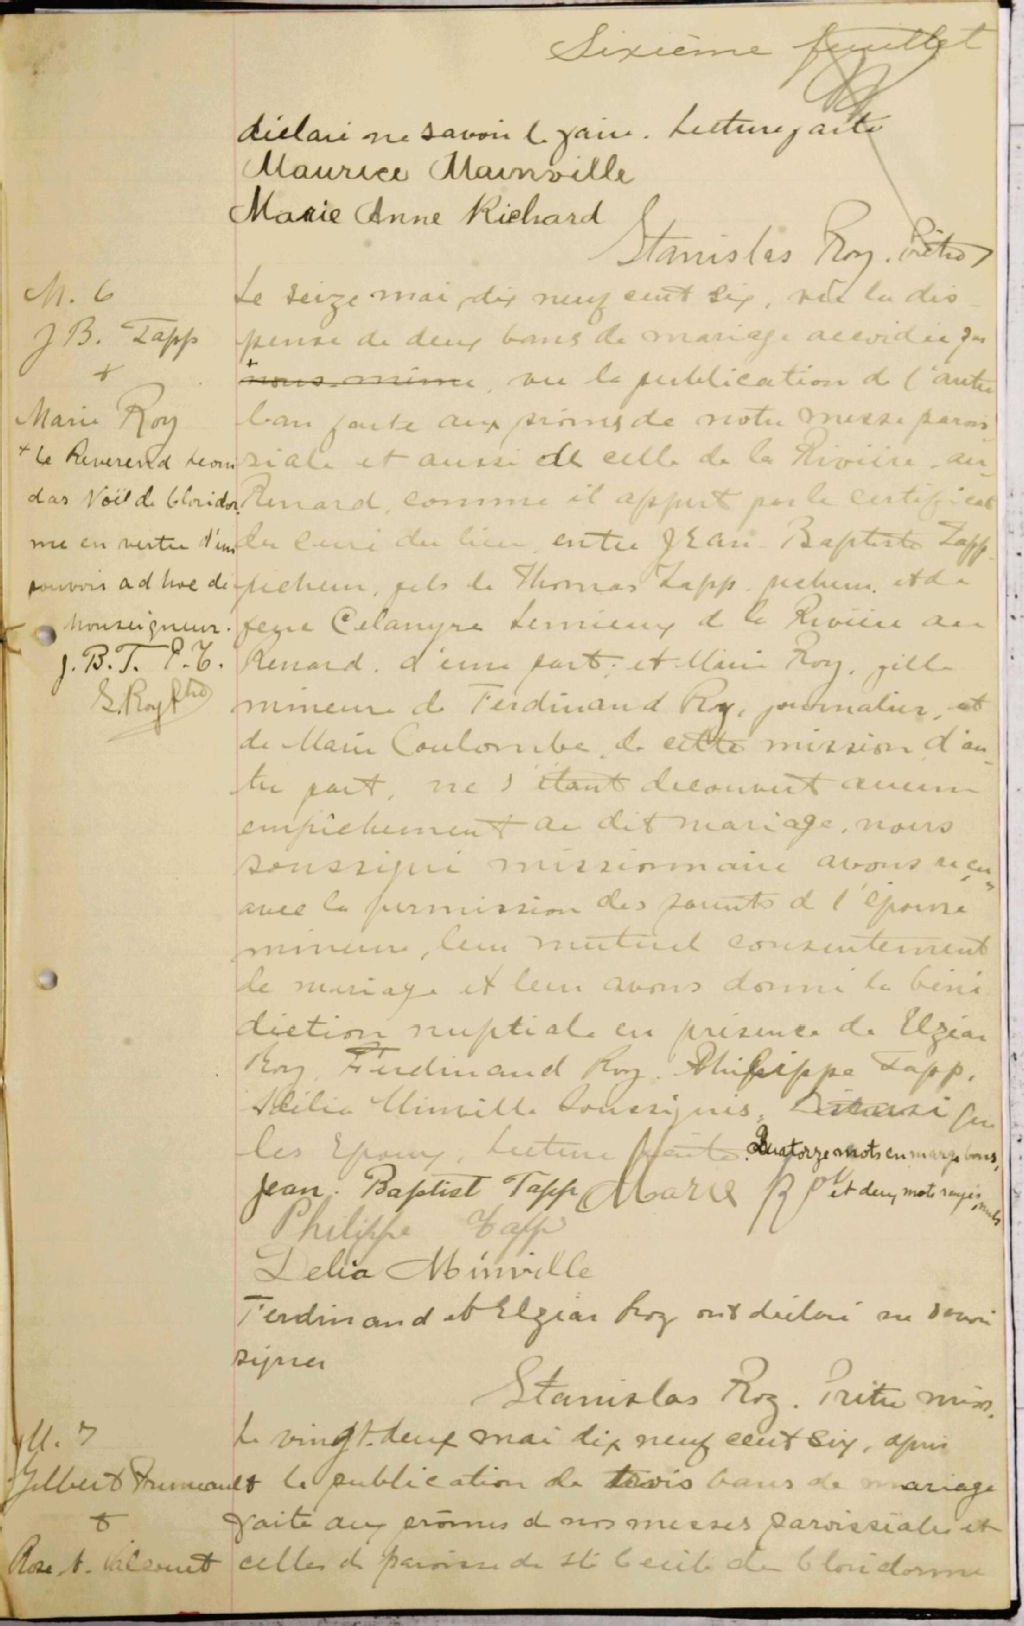 Sixième feuillet
déclaré ne savoir le faire. Lecture faite
Maurice Mainville
Marie Anne Richard
Stanislas Roy. Ptre
M. 6
J B. Tapp
+
Marie Roy
+ Le Reverend Leoni
das Noël de Cloridor
me en vertu d'un
pouvoir ad hoc de
Monseigneur.
J. B. T. P. T.
S. Roy Ptre
Le seize mai dix neuf cent six, vu la dis-
pense de deux bans de mariage accordée par
+ nous-même, vu la publication de l'autre
ban faite aux prônes de notre messe parois
siale et aussi de celle de la Rivière-au-
Renard, comme il appert par le certificat
du curé du lieu, entre Jean-Baptiste Tapp
pecheur, fils de Thomas Tapp pecheur, et de
feue Celanyre Lemieux de la Rivière au
Renard. d'une part; et Marie Roy, fille
mineure de Ferdinand Roy, journalier, et
de Marie Coulombe de cette mission, d'au-
tre part, ne s'étant decouvert aucun
empêchement au dit mariage, nous
soussigné missionnaire avons reçu,
avec la permission des parents de l'épouse
mineure, leur mutuel consentement
de mariage et leur avons donné la béné
diction nuptiale en présence de Elzéar
Roy, Ferdinand Roy. Philippe Tapp,
Délia Minville soussignés, que
les Epoux. Lecture faite. Quatorze mots en marge bons,
et deux mots rayés nuls
Jean. Baptist Tapp Marie R
Philippe Tapp
Delia Minville
Ferdinand et Elzéar Roy ont déclaré ne savoir
signer
Stanislas Roy. Prêtre miss.
M. 7
Gilbert Pruneault
+
Rose A. Valcourt
Le vingt-deux mai dix neuf cent six, après
la publication de trois bans de mariage
faite aux prônes de nos messes paroissiales et
celles de paroisse de Ste Cecile de Cloridorme